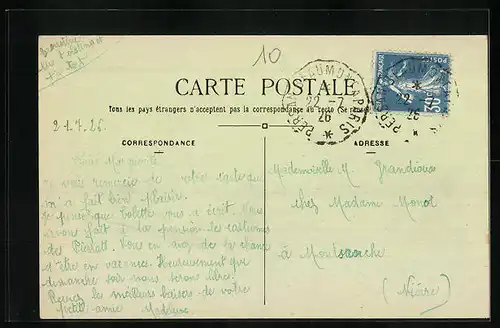 10
CARTE POSTALE
Tous les pays étrangers n'acceptent pas la correspondance au recto (Se
22-7
26
PARIS
POSTES
21.7.26
CORRESPONDANCE
ADRESSE
Chère Marguerite
Je vous remercie de votre carte qui
m'a fait bien plaisir.
Je pense que Colette vous a écrit. Nous
avons fait à la pension les costumes
de Pierrot. Vous en avez de la chance
d'être en vacances. Heureusement que
dimanche soir nous serons libres.
Recevez les meilleurs baisers de votre
petite amie Madeleine
Mademoiselle M.
chez Madame Monot
à Montsauche
(Nièvre)